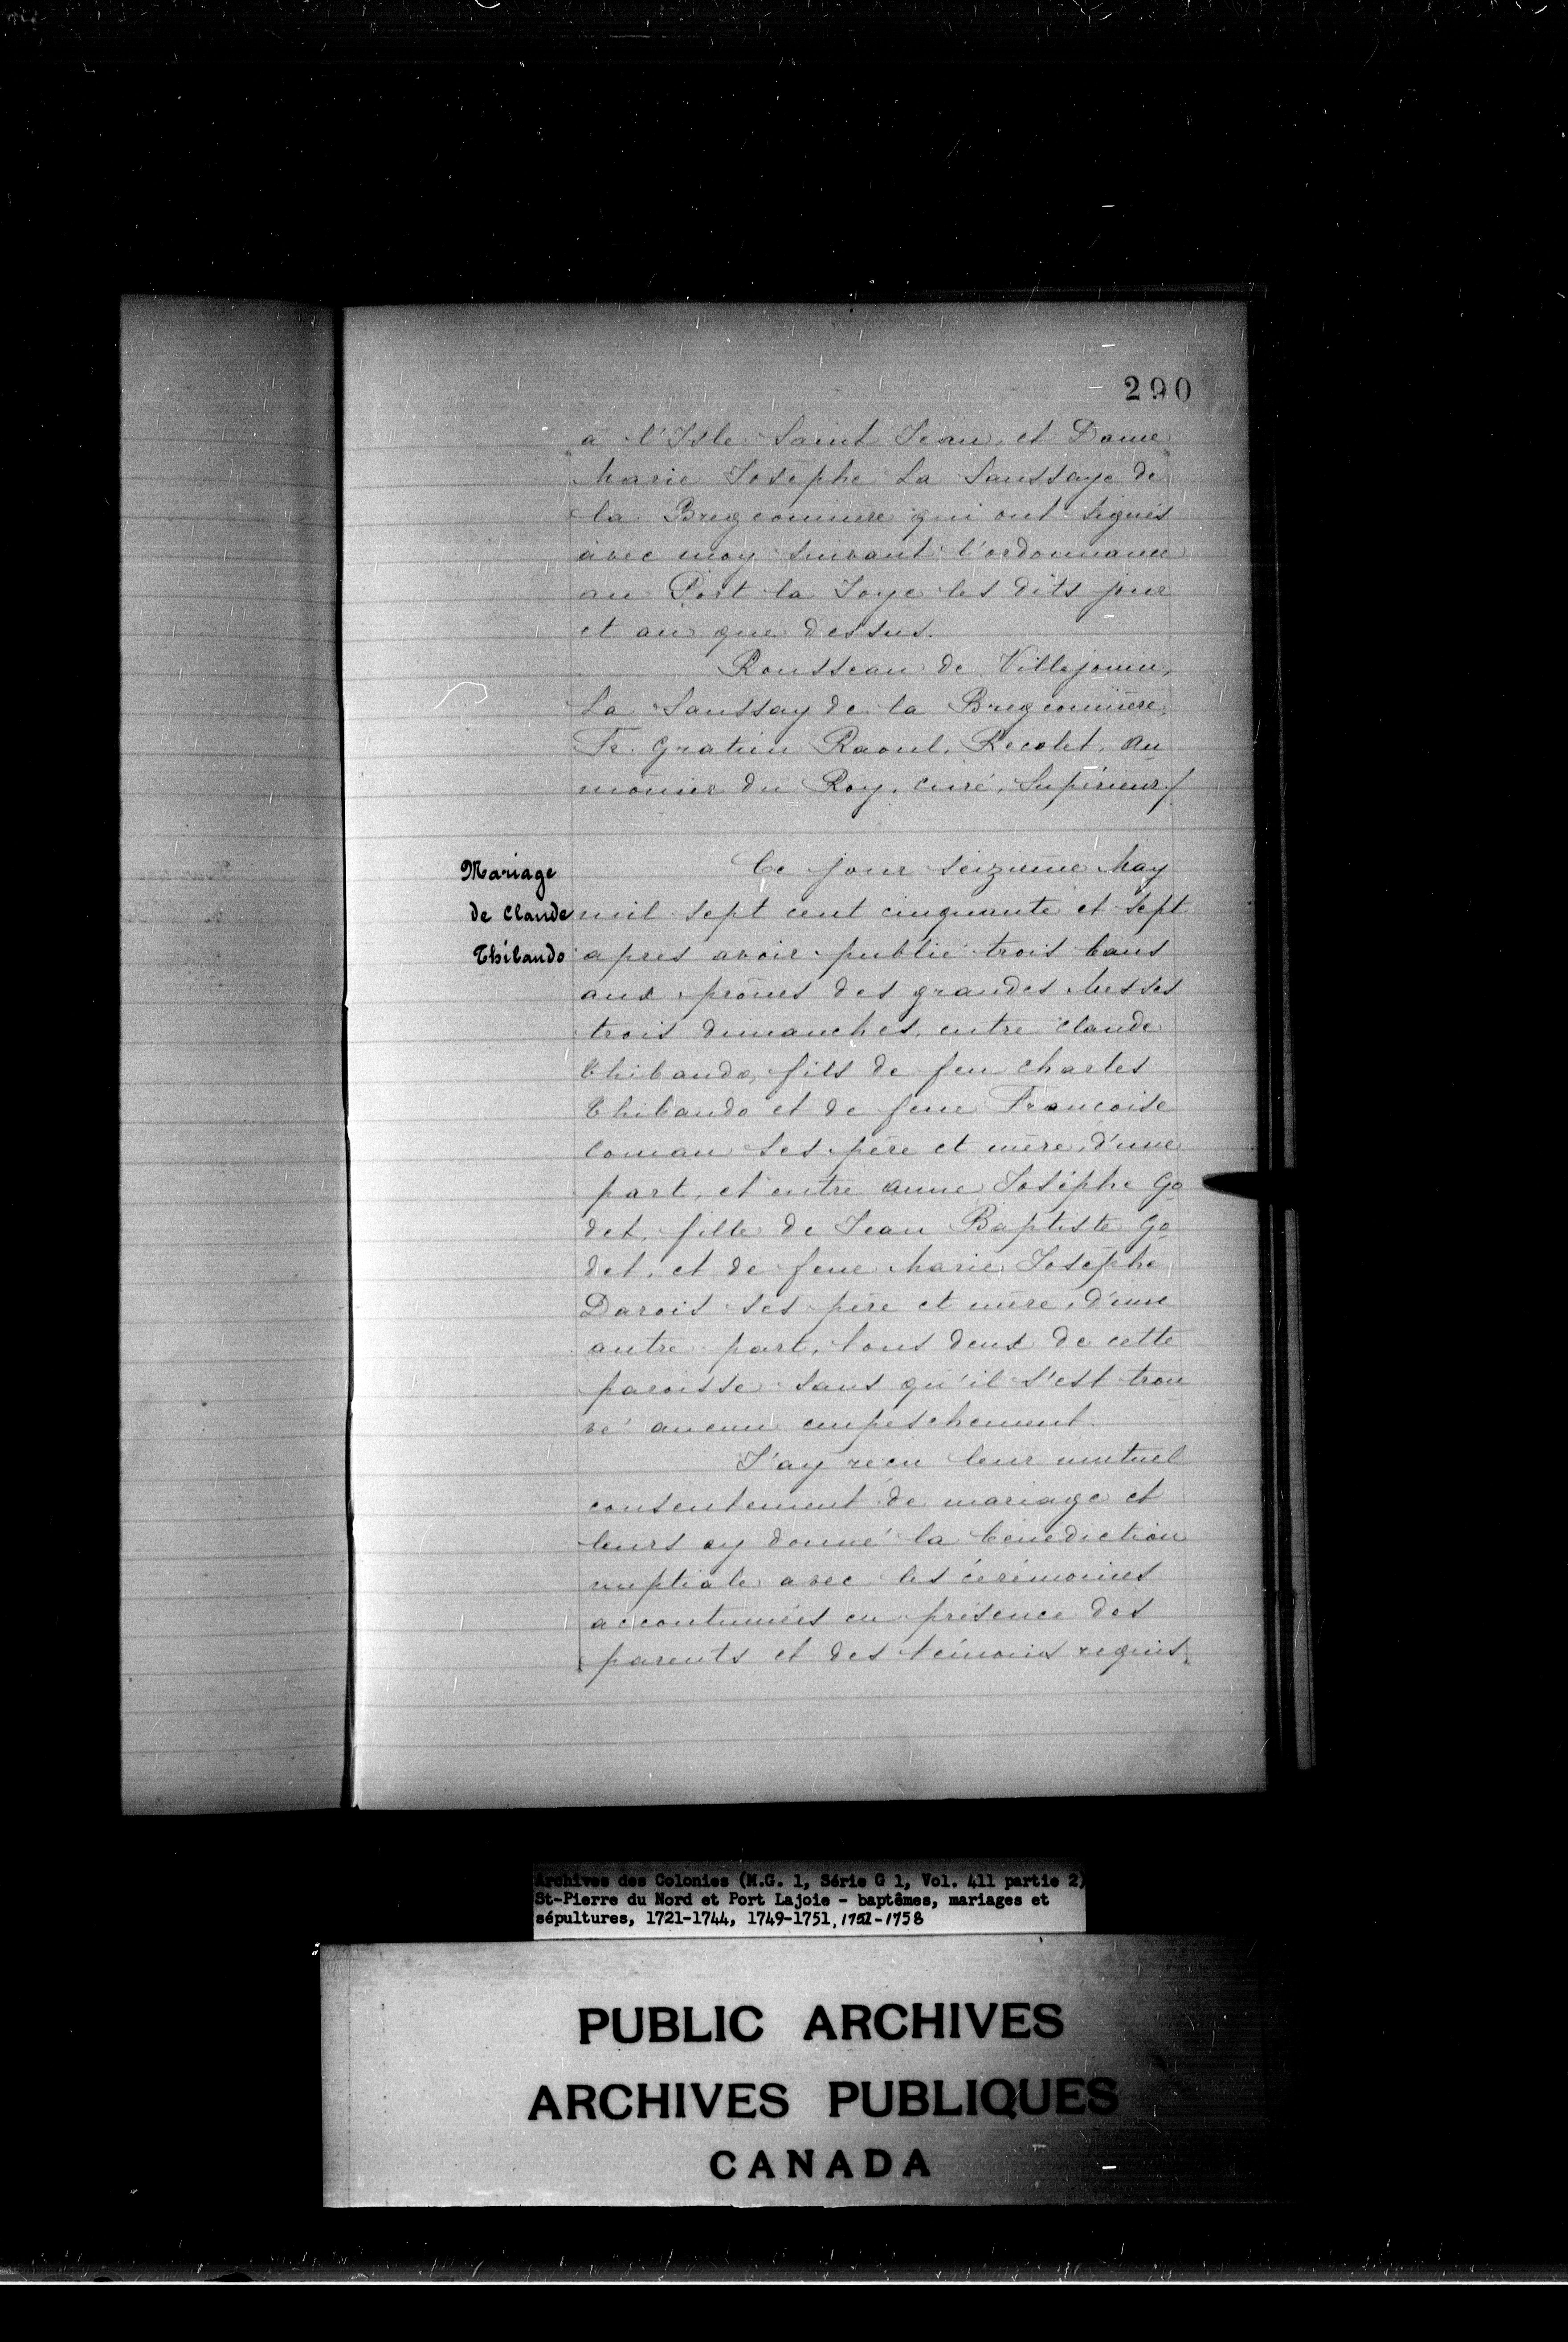 290
à l'Isle Saint Jean, et Dame
Marie Josephe La Saussaye de
la Bregeonnière qui ont signés
avec moy suivant l'ordonnance
au Port la Joye les dits jour
et an que dessus.
Rousseau de Villejouin,
La Saussay de la Bregeonnière,
Fr. Gratien Raoul, Recolet, au
mônier du Roy, curé, Supérieur./
Mariage
de Claude
Thibaudo
Ce jour seizième May
mil sept cent cinquante et sept
apres avoir publié trois bans
aux prônes des grandes Messes
trois dimanches, entre Claude
Thibaudo, fils de feu Charles
Thibaudo et de feue Francoise
Coman ses père et mère, d'une
part, et entre Anne Josephe Go
det, fille de Jean Baptiste Go
det, et de feue Marie Josephe
Darois ses père et mère, d'une
autre part, tous deux de cette
paroisse sans qu'il s'est trou
vé aucun empeschement.
J'ay recu leur mutuel
consentement de mariage et
leurs ay donné la bénédiction
nuptiale avec les cérémonies
accoutumées en présence des
parents et des témoins requis,
Archives des Colonies (M.G. 1, Série G 1, Vol. 411 partie 2)
St-Pierre du Nord et Port Lajoie - baptêmes, mariages et
sépultures, 1721-1744, 1749-1751, 1752-1758
PUBLIC ARCHIVES
ARCHIVES PUBLIQUES
CANADA